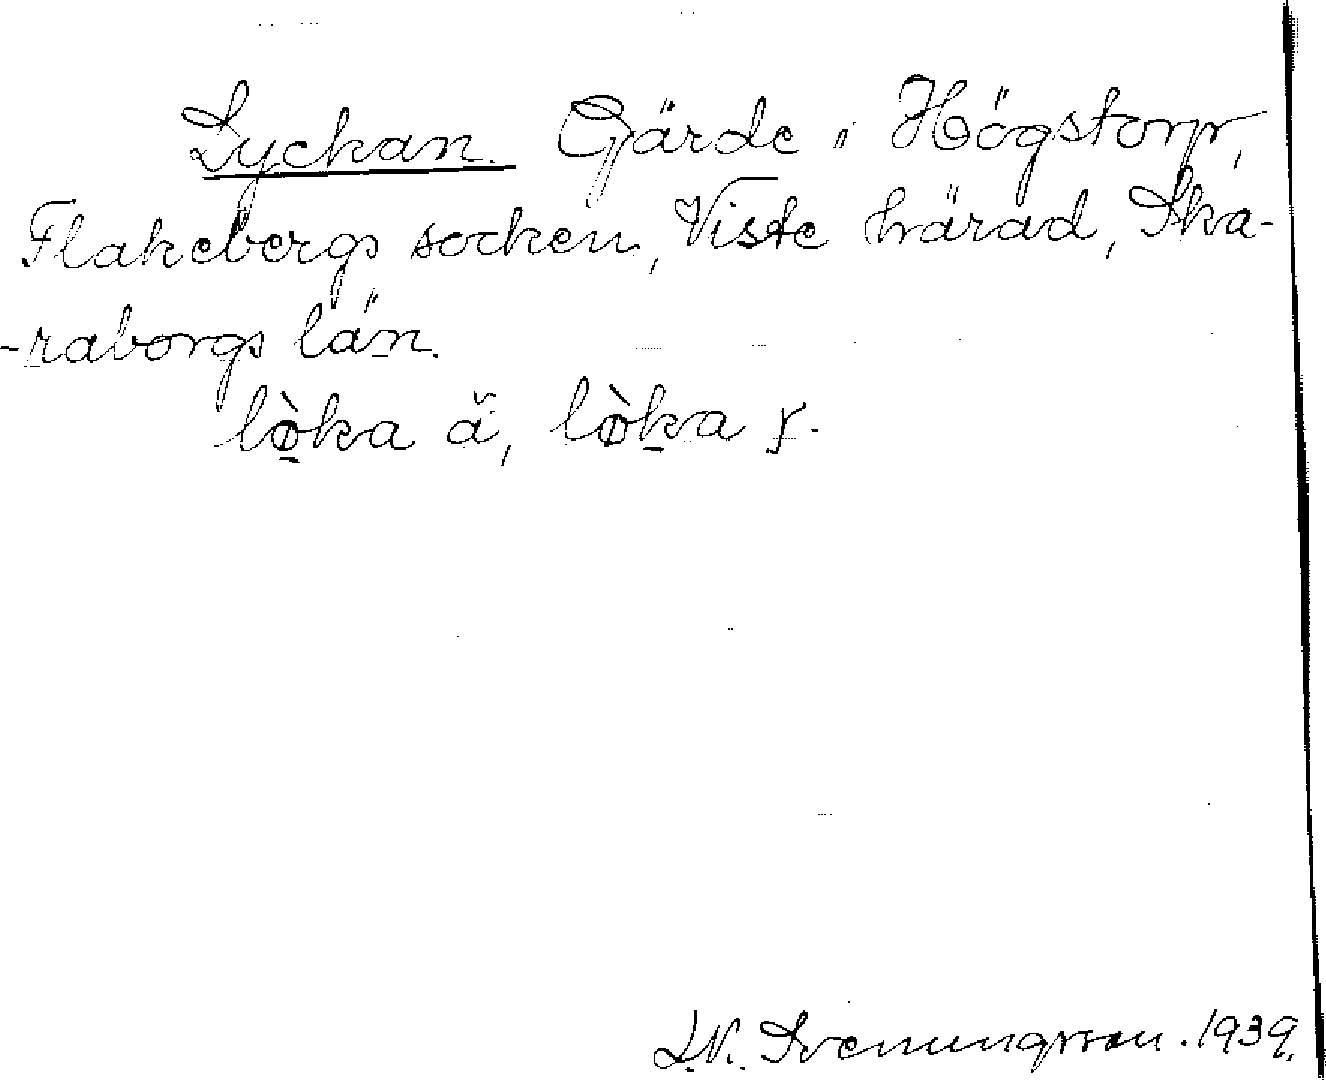 Lyckan. Gärde i Högstorp,
Flakebergs socken, Viste härad, Ska-
-raborgs län.
lø̀ka ä̆, lø̀ka
L.N. Svenungsson. 1939.